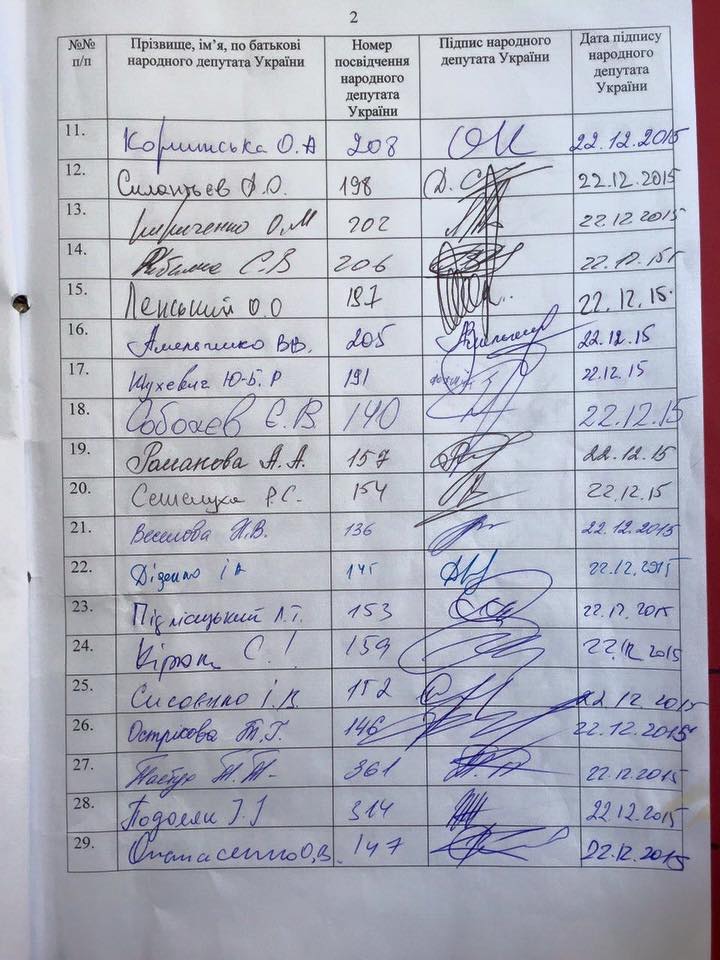 2
№№ п/п Прізвище, ім’я, по батькові народного депутата України Номер посвідчення народного депутата України Підпис народного депутата України Дата підпису народного депутата України
11. Корчинська О.А 208 22.12.2015
12. Силантьєв Д.О. 198 Д.С 22.12.2015
13. Кириченко О.М 202 22.12.2015
14. Рибалка С.В 206 22.12.15
15. Ленський О.О 197 22.12.15.
16. Амельченко В.В. 205 22.12.15
17. Шухевич Ю-Б.Р 191 22.12.15
18. Соболєв Є.В 140 22.12.15
19. Романова А.А. 157 22.12.15
20. Семенуха Р.С. 154 22.12.15
21. Веселова Н.В. 136 22.12.2015
22. Діденко І А 145 22.12.2015
23. Підлісецький Л.Т. 153 22.12.2015
24. Кірюш С.І 159 22.12.2015
25. Сисоєнко І.В 152 22.12.2015
26. Острікова Т.Г. 146 22.12.2015
27. Пастух Т.Т. 361 22.12.2015
28. 314 22.12.2015
29. Опанасенко О.В. 147 22.12.2015